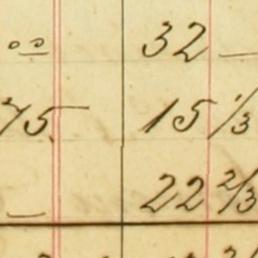 00 32 —
75 15 1/3
— 22 2/3